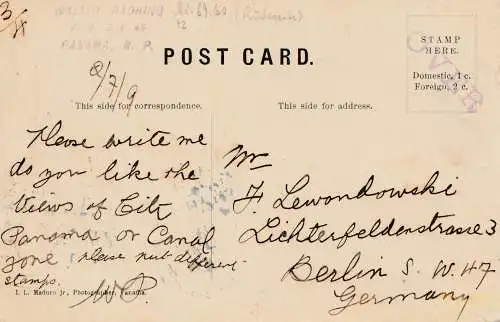 POST CARD.
STAMP
HERE.
Domestic, 1 c.
Foreign, 2 c.
2/7/9
This side for correspondence.
This side for address.
Please write me
do you like the
Views of City
Panama or Canal
zone please put different
stamps.
I. L. Maduro jr., Photographer, Panama.
Mr
F. Lewondowski
Lichterfeldenstrasse 3
Berlin S. W. 47
Germany
PANAMA, R. P.